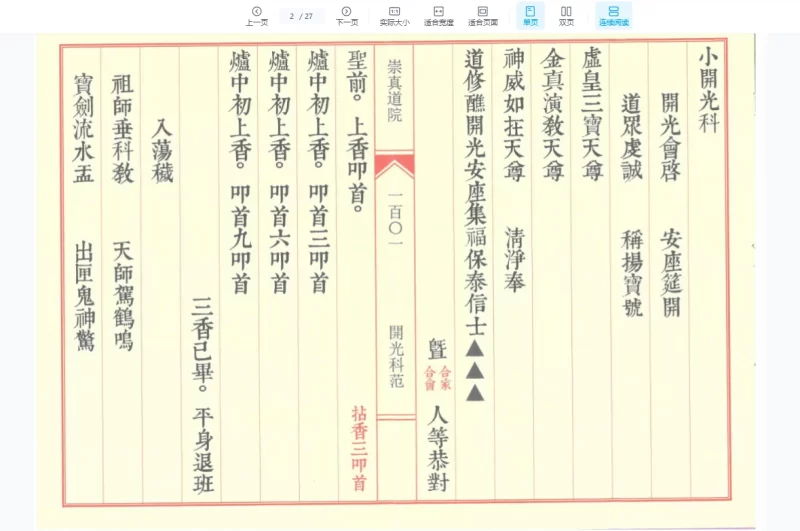 上一页
2 / 27
下一页
实际大小
适合宽度
适合页面
单页
双页
连续阅读
小開光科
開光會啓 安座筵開
道眾虔誠 稱揚寶號
虛皇三寶天尊
金真演教天尊
神威如在天尊 清淨奉
道修醮開光安座集福保泰信士▲▲▲
暨 合家 合會 人等恭對
崇真道院 一百〇一 開光科范
聖前。上香叩首。 拈香三叩首
爐中初上香。叩首三叩首
爐中初上香。叩首六叩首
爐中初上香。叩首九叩首
三香已畢。平身退班
入蕩穢
祖師垂科教 天師駕鶴鳴
寶劍流水盂 出匣鬼神驚